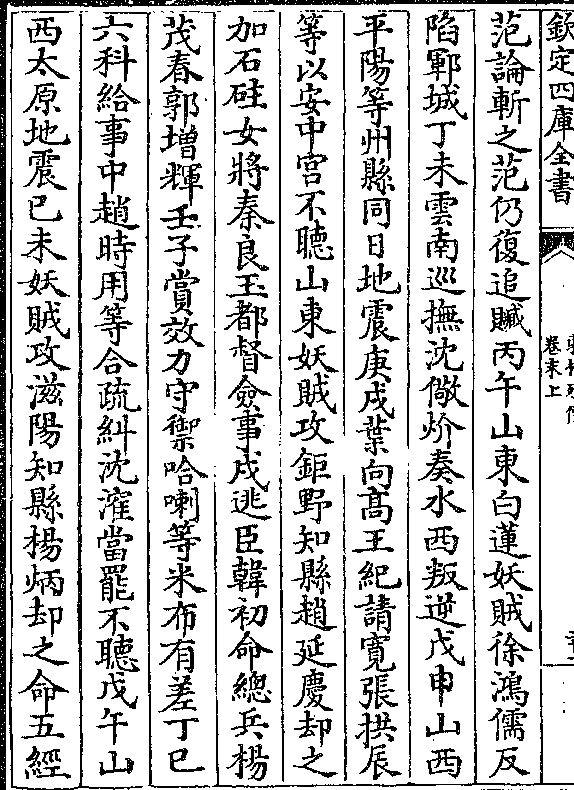 欽定四庫全書
卷末上
范論斬之范仍復追贓丙午山東白蓮妖賊徐鴻儒反
陷鄆城丁未雲南巡撫沈儆炌奏水西叛逆戊申山西
平陽等州縣同日地震庚戌葉向髙王紀請寛張拱辰
等以安中宮不聽山東妖賊攻鉅野知縣趙延慶却之
加石砫女將秦良玉都督僉事戍逃臣韓初命總兵楊
茂春郭增輝壬子賞效力守禦哈喇等米布有差丁巳
六科給事中趙時用等合疏糾沈㴶當罷不聽戊午山
西太原地震己未妖賊攻滋陽知縣楊炳却之命五經